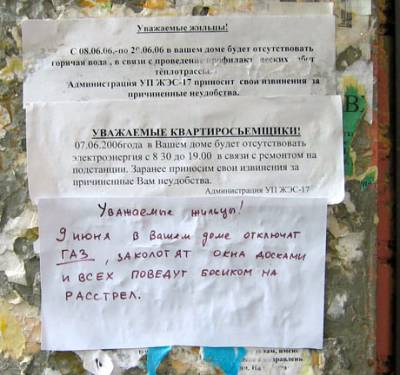 Уважаемые жильцы!
С 08.06.06.-по 20.06.06 в вашем доме будет отсутствовать
горячая вода, в связи с проведение профилактических работ
теплотрассы.
Администрация УП ЖЭС-17 приносит свои извинения за
причиненные неудобства.
УВАЖАЕМЫЕ КВАРТИРОСЪЕМЩИКИ!
07.06.2006года в Вашем доме будет отсутствовать
электроэнергия с 8 30 до 19.00 в связи с ремонтом на
подстанции. Заранее приносим свои извинения за
причиненные Вам неудобства.
Администрация УП ЖЭС-17
Уважаемые жильцы!
9 июня в Вашем доме отключат
ГАЗ, заколотят окна досками
и всех поведут босиком на
расстрел.